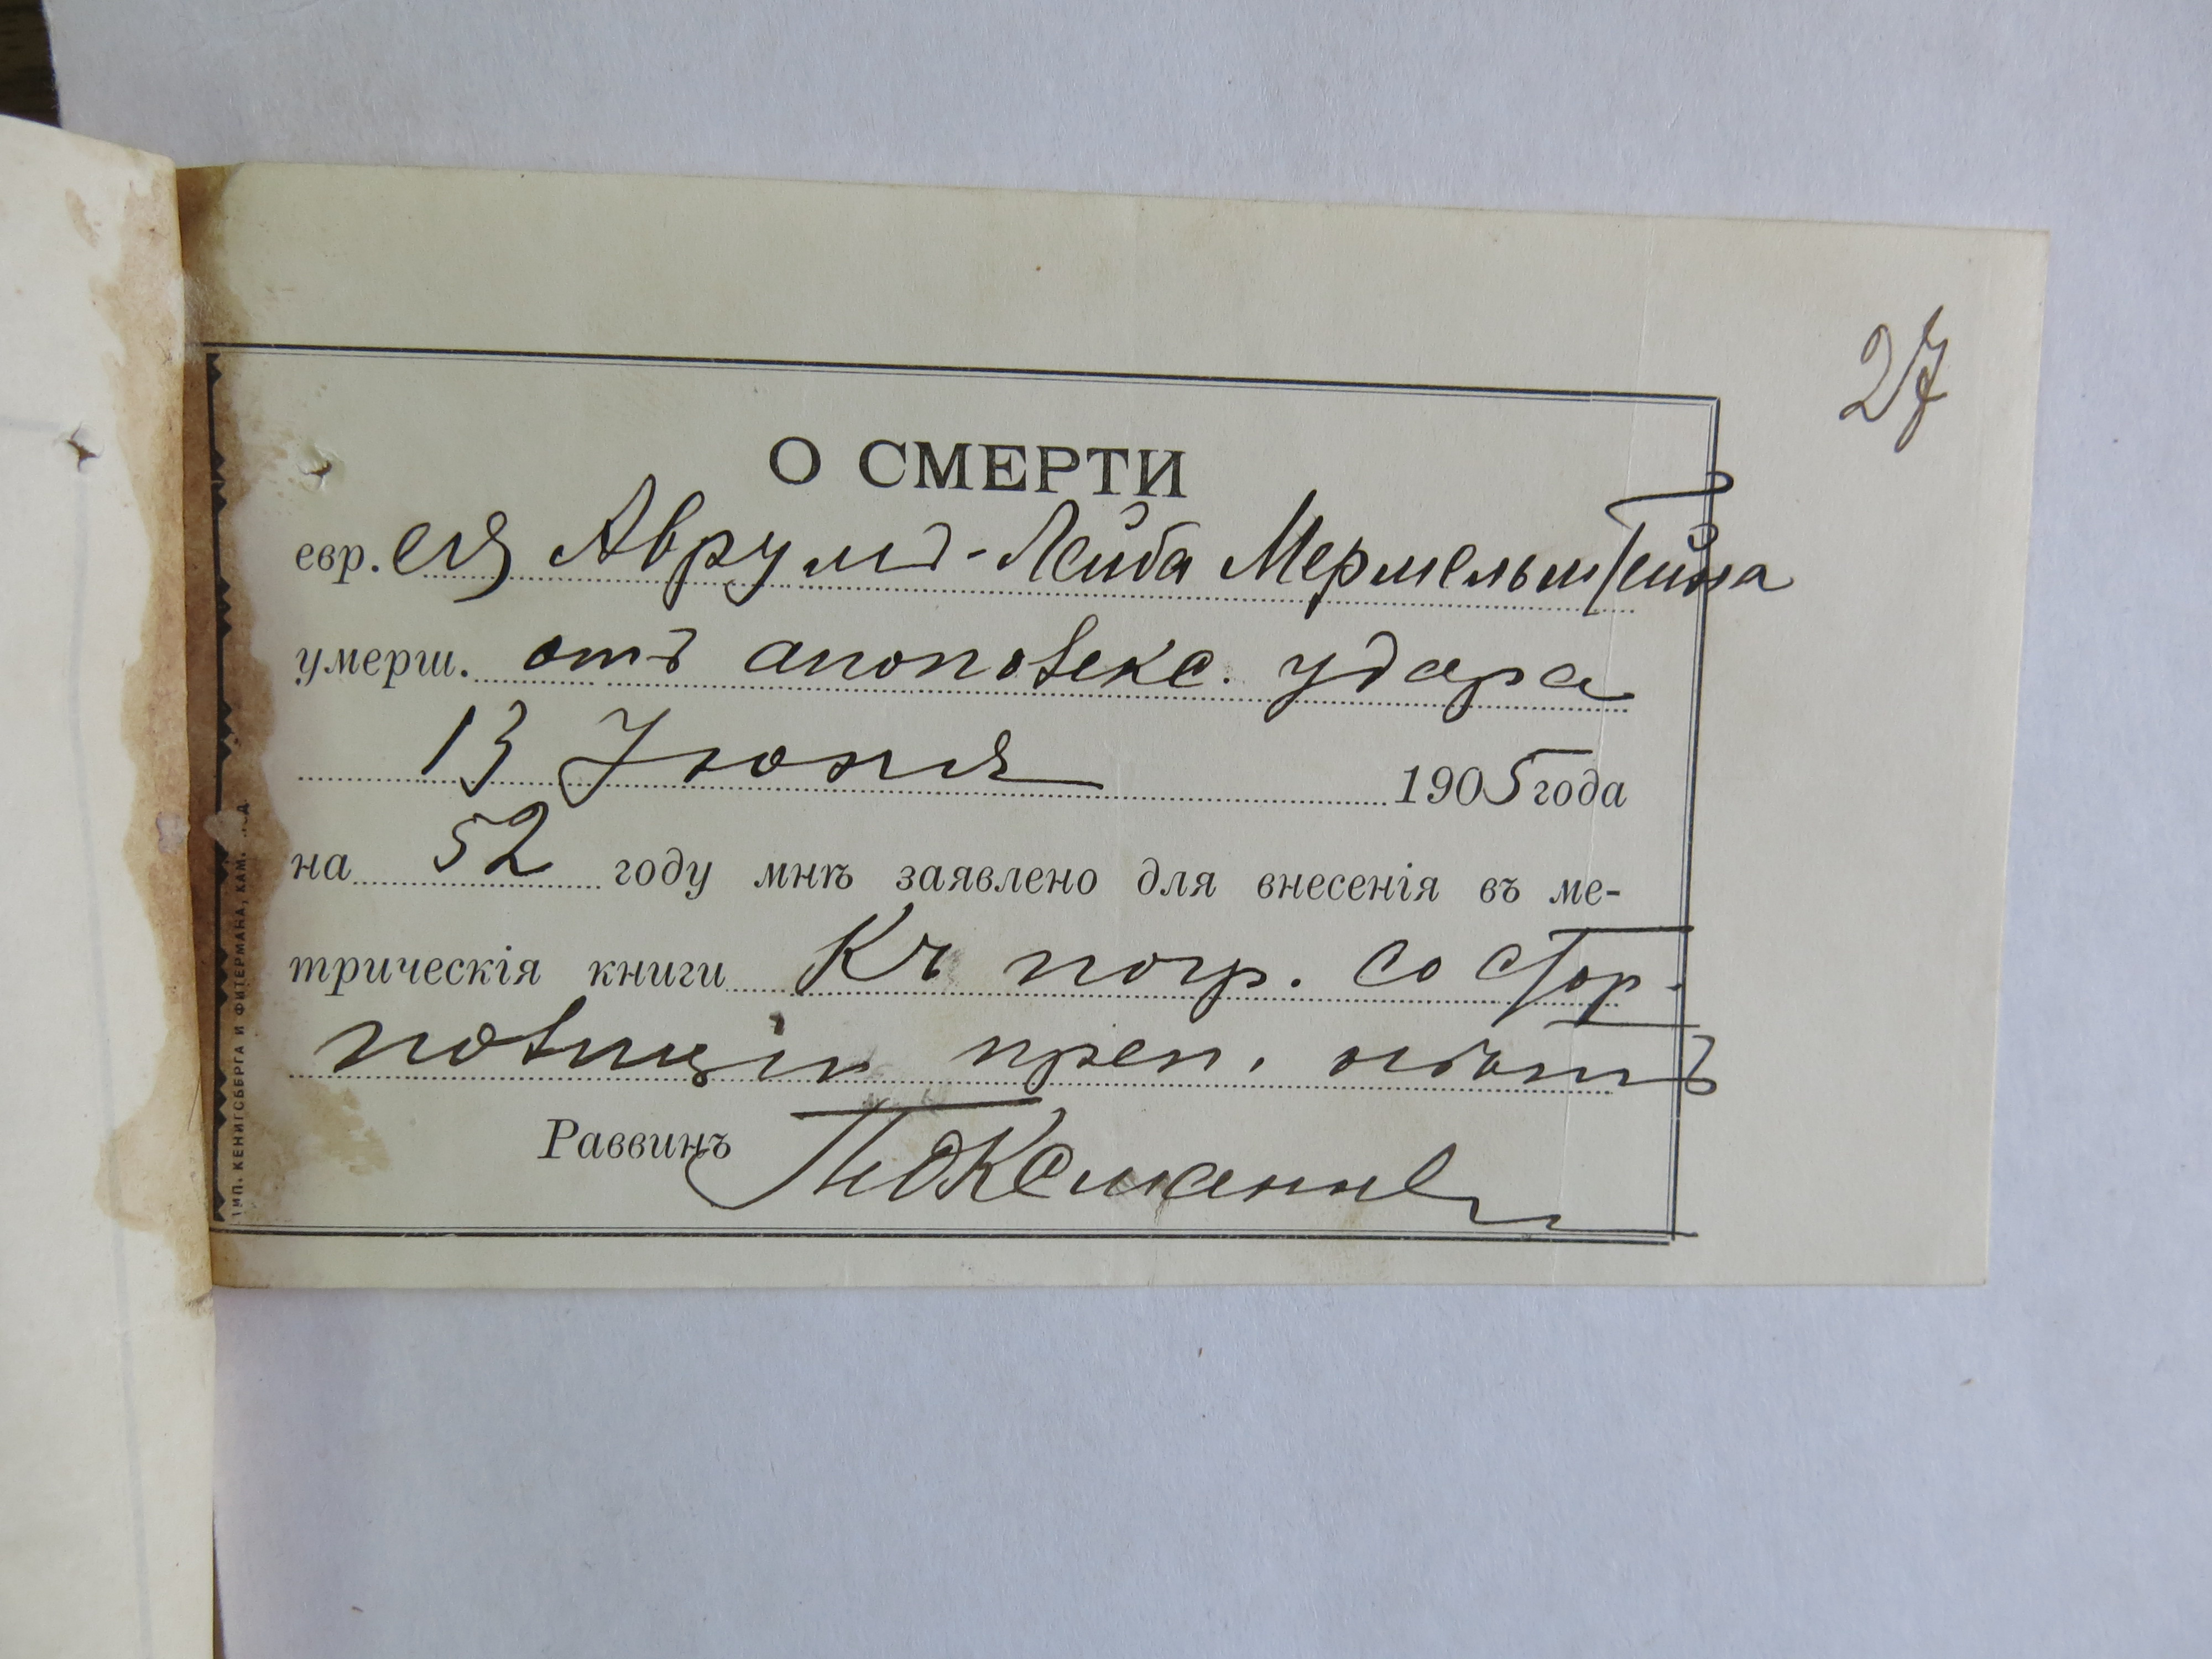 27
О СМЕРТИ
евр.ея Аврумъ-Лейба Мермельштейна
умерш. отъ апоплекс. удара
13 Июня 1905 года
на 52 году мнѣ заявлено для внесенія въ ме-
трическія книги Къ погр. со стор.
полиціи преп. нѣтъ
Раввинъ
ТИП. КЕНИГСБЕРГА И ФИТЕРМАНА, КАМ.